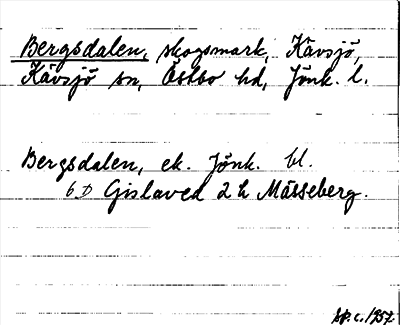 Bergsdalen, skogsmark, Kävsjö,
Kävsjö sn, Östbo hd, Jönk. l.
Bergsdalen, ek. Jönk. bl.
6 D Gislaved 2 h Mässeberg.
1957